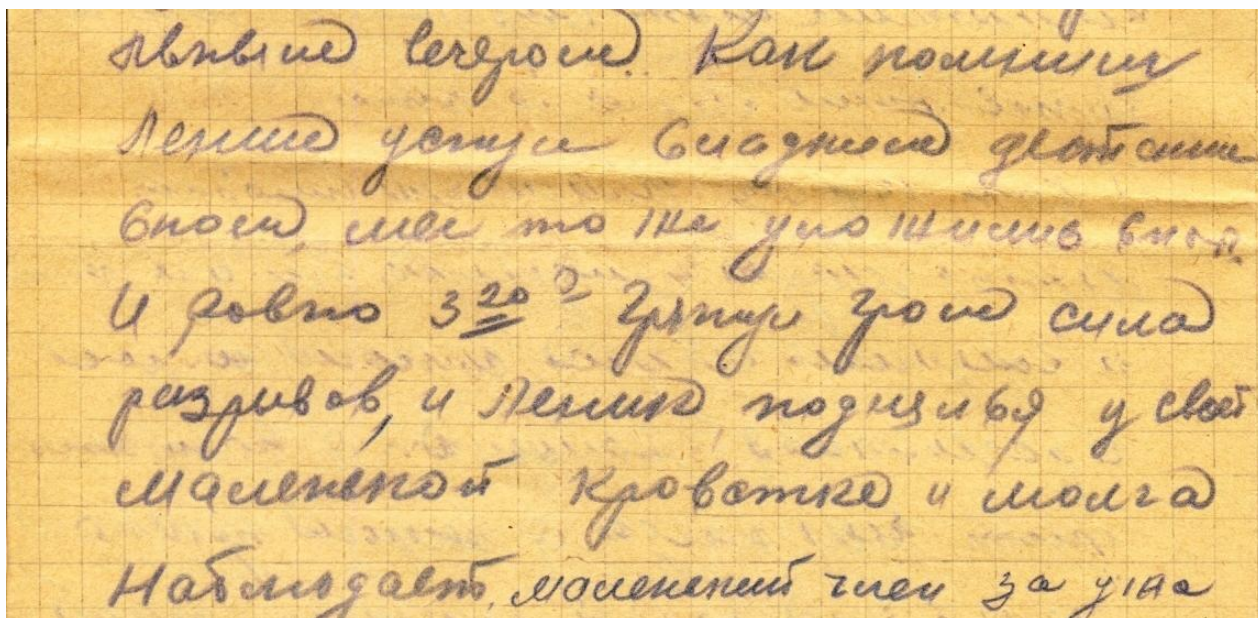 вечером. Как помниш
Леник уснул Сладким детским
сном, мы то же уложились
И ровно 3 20 грянул гром сила
разривов, и Леник поднялся у своей
маленькой кроватке и молча
Наблюдает, маленький член за